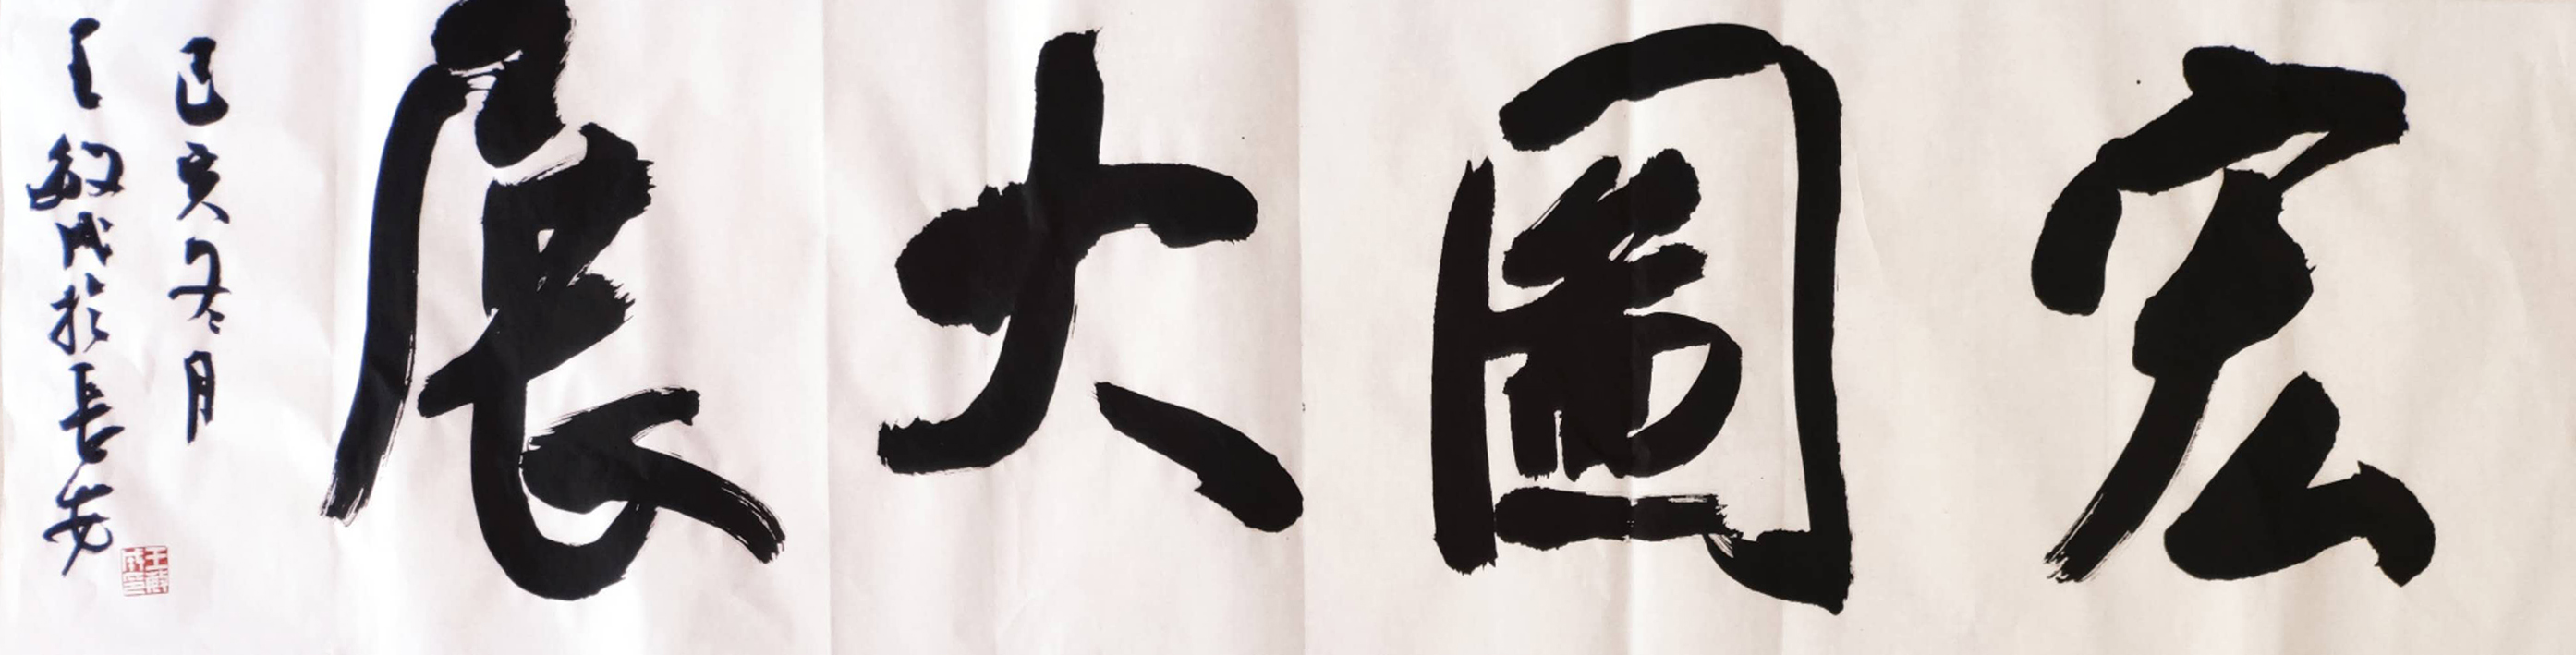 宏圖大展
己亥冬月
王敏成於長安
王敏成印